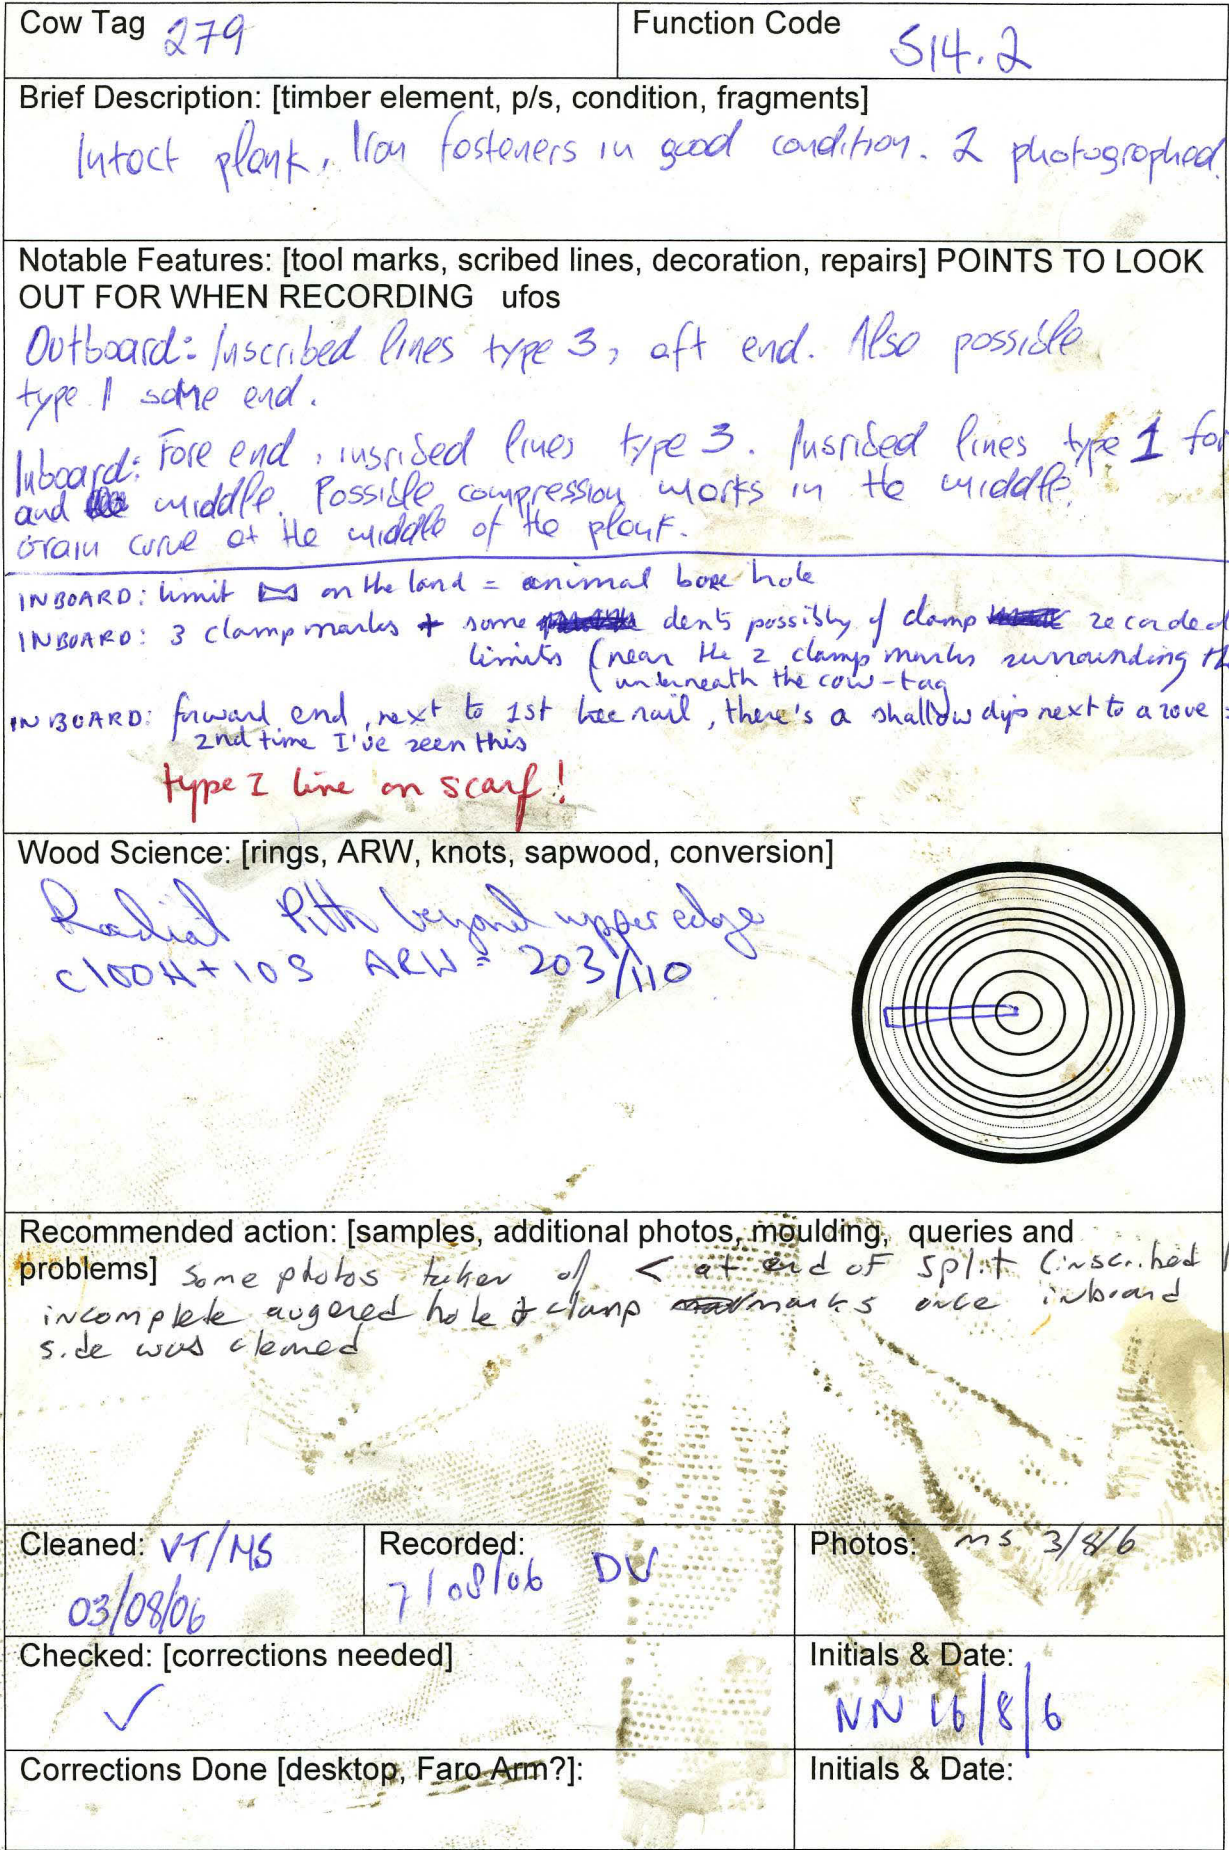 Cow Tag 279
Function Code S14.2
Brief Description: [timber element, p/s, condition, fragments]
Intact plank, Iron fasteners in good condition. 2 photographed.
Notable Features: [tool marks, scribed lines, decoration, repairs] POINTS TO LOOK
OUT FOR WHEN RECORDING ufos
Outboard: Inscribed lines type 3, aft end. Also possible
type 1 same end.
Inboard: Fore end, insrided lines type 3. Insrided lines type 1 for
and middle. Possible compression marks in the middle.
Grain curve at the middle of the plank.
INBOARD: limit on the land = animal bore hole
INBOARD: 3 clamp marks + some dents possibly of clamp recorded
limits (near the 2 clamp marks surrounding th
underneath the cow-tag
INBOARD: forward end, next to 1st treenail, there's a shallow dip next to a rove =
2nd time I've seen this
type I line on scarf!
Wood Science: [rings, ARW, knots, sapwood, conversion]
Radial Pith beyond upper edge
c100H + 10S ARW = 203/110
Recommended action: [samples, additional photos, moulding, queries and
problems] Some photos taken of < at end of split (inscribed
incomplete augered hole & clamp marks once inboard
side was cleaned
Cleaned: VT/MS
03/08/06
Recorded:
7/08/06 DV
Photos: MS 3/8/6
Checked: [corrections needed]
✓
Initials & Date:
NN 16/8/6
Corrections Done [desktop, Faro Arm?]:
Initials & Date: